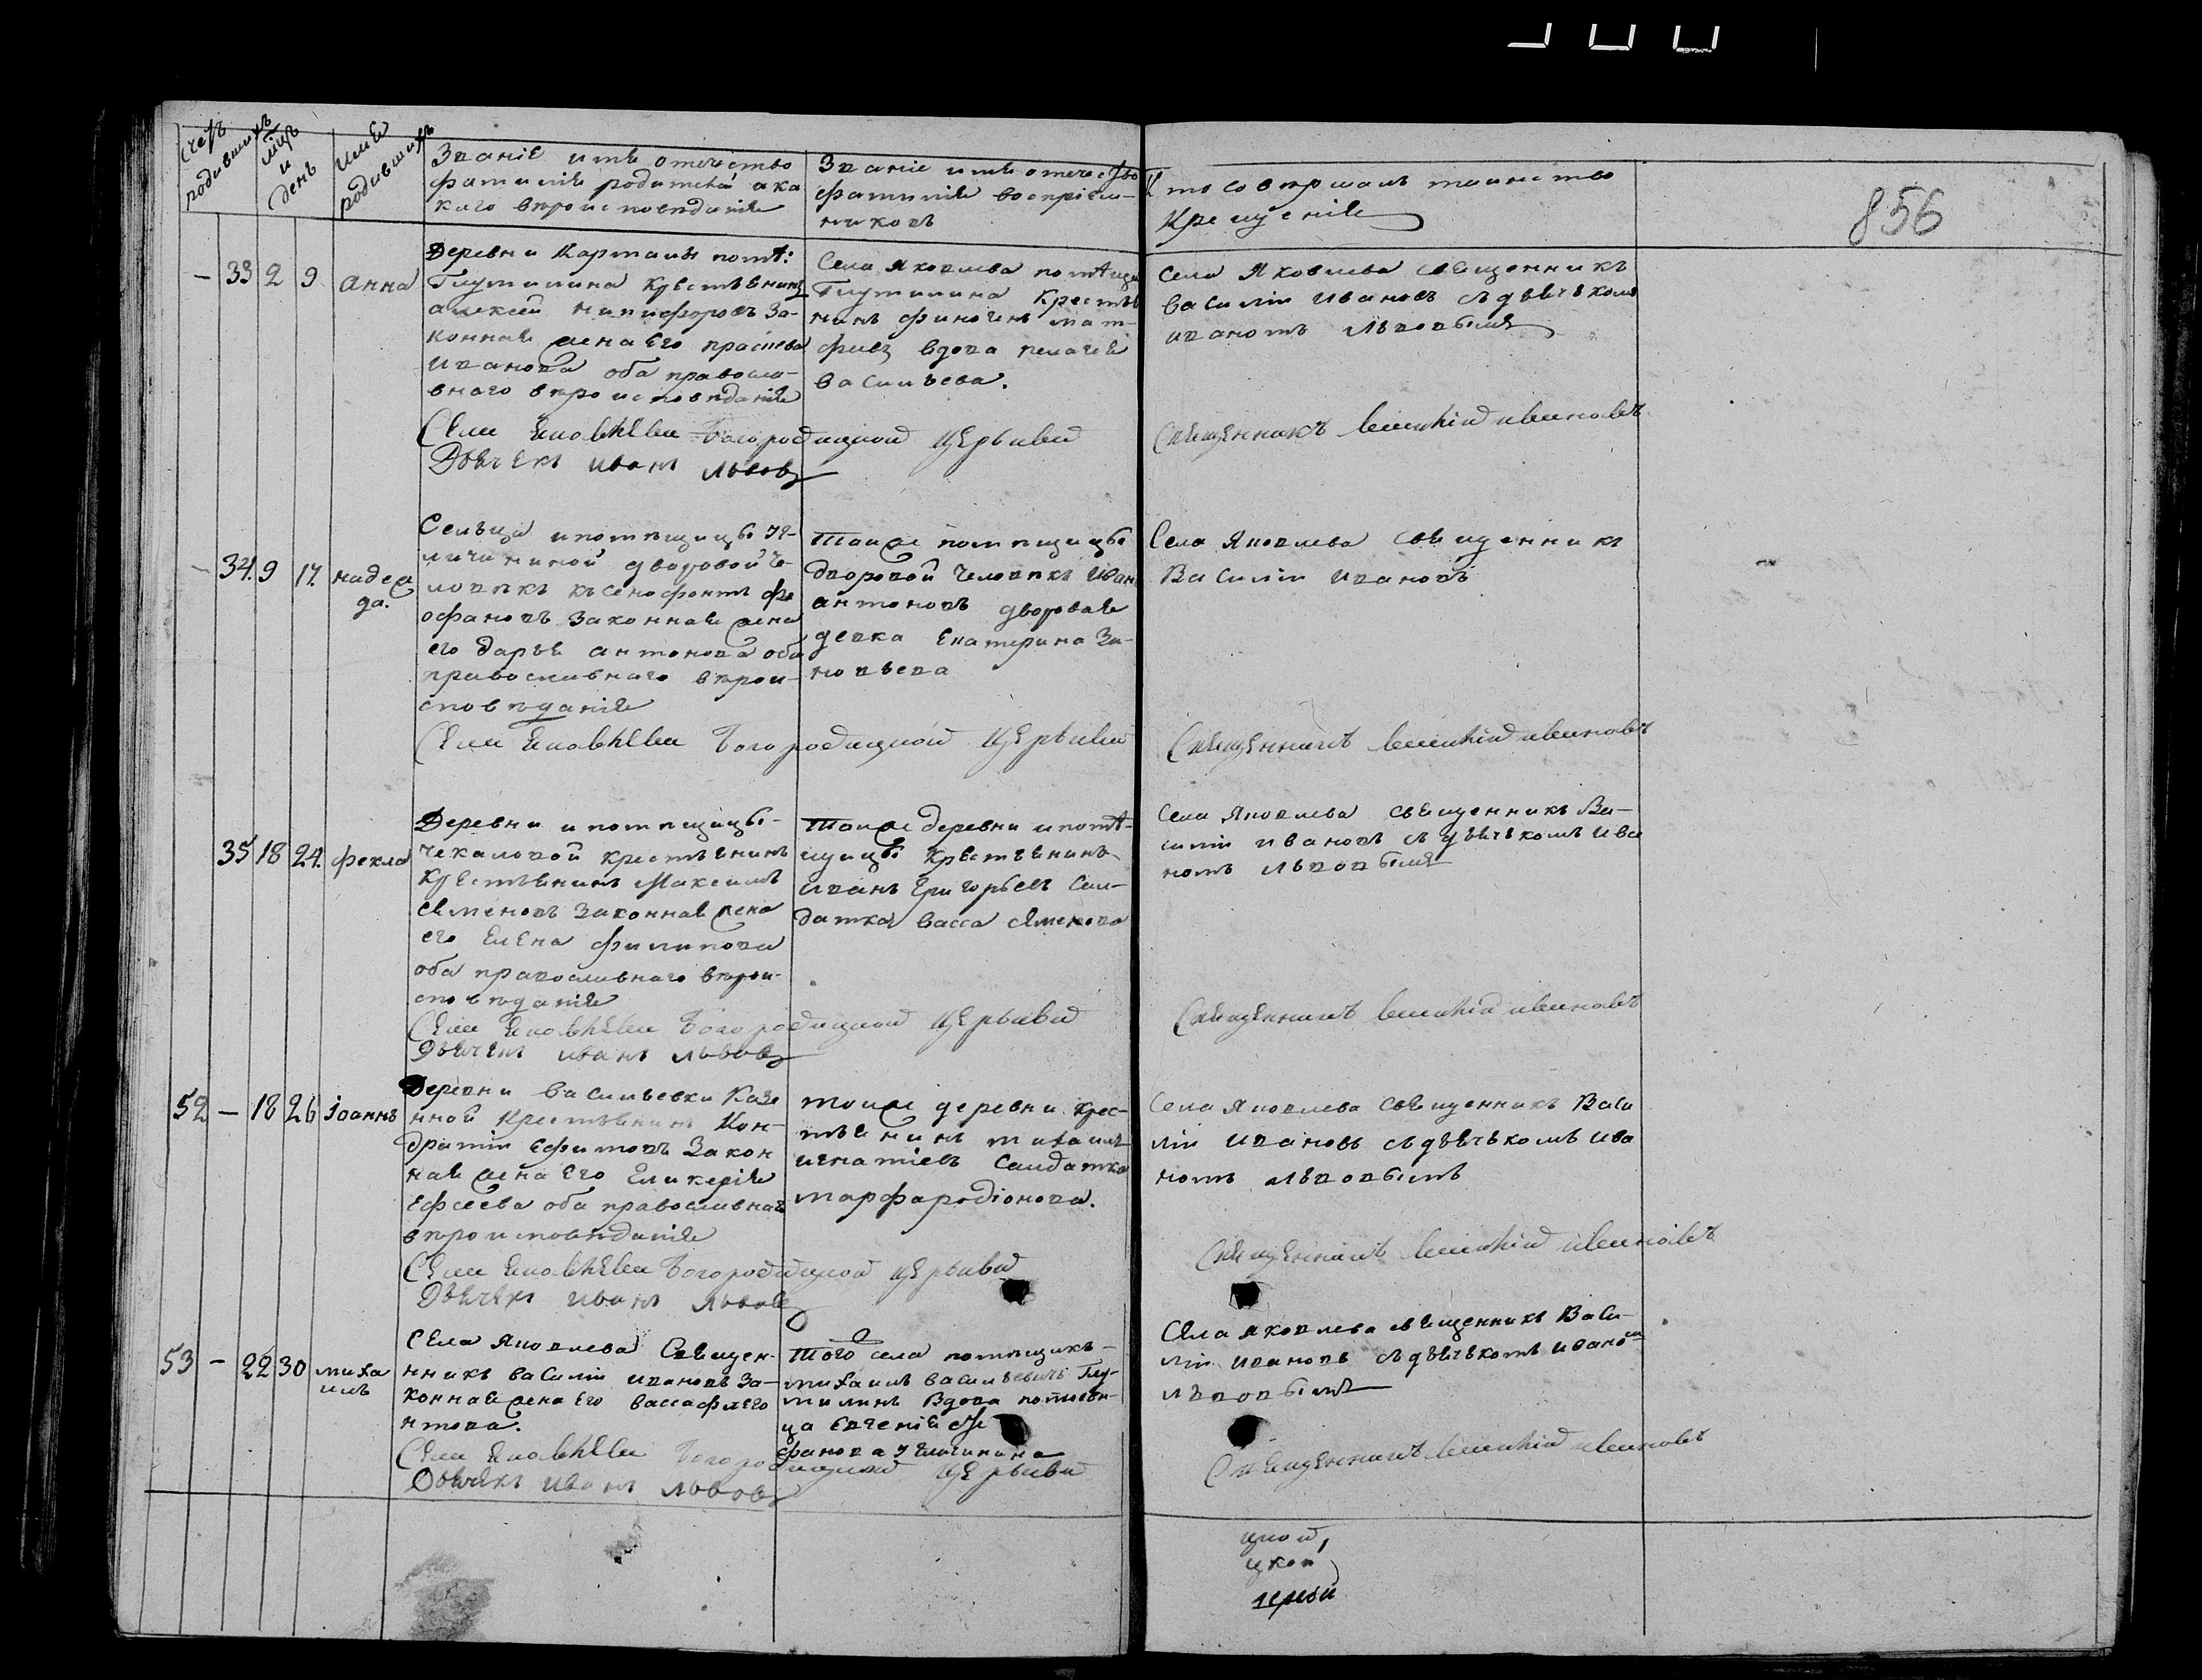 Счетъ родившихъ
мцъ и день
имѣ родившихъ
Званіе имѣ отечество
фамиліѣ родителей ика
кого вѣроисповѣданіѣ
Званіе имѣ отечество
фамиліѣ воспріем-
никовъ
Кто совершалъ таинство
Крещеніѣ
856
— 33 2 9 Анна
Деревни Картамы помѣ:
Глутилина Крестьенинъ
Алексей Никифоровъ за-
коннаѣ жена Его праск
Иванова оба правосла-
вного вѣроисповѣданіѣ
Села Яковлева помѣщи
Глутилина Крестье
нинъ финогенъ мат-
фиев вдова пелагеѣ
васильева.
Села Яковлева свѣщенникъ
василіи Ивановъ съ дѣечькомъ
иваномъ Львовымъ
Села Яковлева Богородицкой церькви
Священникъ василій ивановъ
Дьечекъ иванъ львовъ
— 34. 9 17. надежда.
Сельца ипомѣщицы
дворовой че-
ловѣкъ ксенофонтъ фе
офановъ законнаѣ жена
его дарьѣ антонова оба
православнаго вѣрои-
сповѣданіѣ
Тойже помѣщицы
дворовой человѣкъ Иван
антоновъ дворовая
девка Екатерина Зи-
новьева
Села Яковлева свѣщенникъ
Василіи Ивановъ
Села Яковлева Богородицкой церькви
Священникъ василій ивановъ
35 18 24. фекла
Деревни ипомѣщицы-
чекаловой крестьенинъ
крестьенинъ Максимъ
семеновъ законнаѣ жена
его Елена филипова
оба православнаго вѣрои-
сповѣданіѣ
Тойже деревни ипомѣ-
щицы крестьенинъ
иванъ григорьевъ Сол-
датка васса Семенова
Села Яковлева свѣщенникъ Ва-
силіи ивановъ съ дѣечькомъ ива
номъ львовымъ
Села Яковлева Богородицкой церькви
Священникъ василій ивановъ
Дьечекъ иванъ львовъ
52 — 18 26 іоаннъ
Деревни васильевки Казе
нной Крестьенинъ Кон-
дратіи Ефимовъ Закон
наѣ жена Его Гликеріѣ
Ефсеева оба православнаг
вѣроисповѣданіѣ
тойже деревни крес-
тьенинъ михаилъ
игнатіевъ Солдатка
марфа родіонова.
Села Яковлева свѣщенникъ Васи
ліи Ивановъ съ дѣечькомъ ива
номъ львовымъ
Села Яковлева Богородицкой церькви
Священникъ василій ивановъ
Дьечекъ иванъ львовъ
53 — 22 30 михаилъ
Села Яковлева Свѣщен-
нникъ василіи ивановъ за-
коннаѣ жена его васса
Того села помѣщикъ-
михаилъ васильевичъ Глу-
тилинъ Вдова
Села Яковлева свѣщенникъ Васи-
ліи ивановъ съ дѣечькомъ иваном
львовымъ
Села Яковлева Богородицкой церькви
Священникъ василій ивановъ
Дьечекъ иванъ львовъ
цкой,
цкой